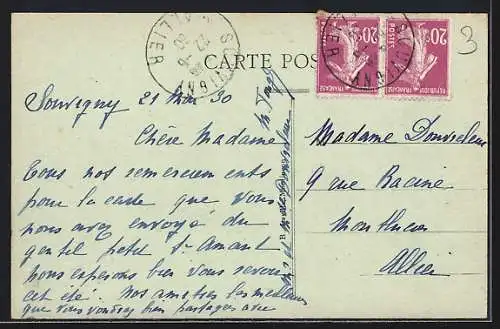 CARTE POS
SOUVIGNY
ALLIER
20c
POSTES
REPUBLIQUE FRANÇAISE
20c
POSTES
REPUBLIQUE FRANÇAISE
3
Souvigny 21 Mai 30
Chère Madame
Tous nos remerciements
pour la carte que vous
nous avez envoyé du
gentil petit St Amant
nous espérons bien vous revoir
cet été. Nos amitiés les meilleures
que vous voudrez bien partager avec
Madame
9 rue Racine
Montlucon
Allier